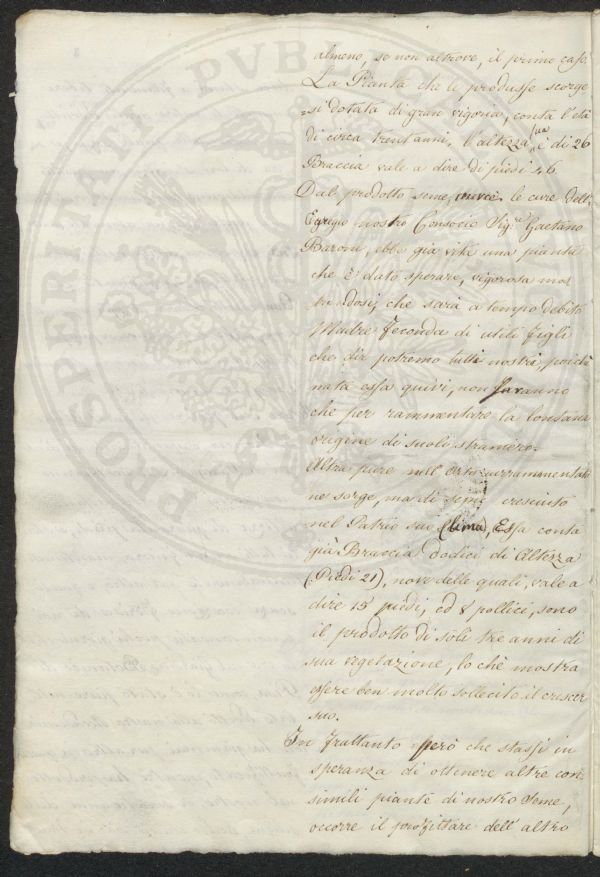 almeno, se non altrove, il primo caso.
La Pianta che le produsse scorge
=si dotata di gran vigoria, conta l'età
di circa trent'anni, l'altezza sua è di 26
Braccia vale a dire di piedi 46.
Dal prodotto seme, mercè le cure dell'
Egregio nostro Consocio Sig.re Gaetano
Baroni, ebbe già vita una pianta
che è dato sperare, vigorosa mos
trandosi, che sarà a tempo debito
Madre feconda di utili figli
che dir potremo tutti nostri, poichè
nata essa quivi, non faranno
che per rammentare la lontana
origine di suoli straniero.
Altra pure nell'Orto surrammentato
ne sorge, ma di seme cresciuto
nel Patrio suo Clima, Essa conta
già Braccia dodici di Altezza
(Piedi 21), nove delle quali, vale a
dire 15 piedi, ed 8 pollici, sono
il prodotto di soli tre anni di
sua vegetazione, lo chè mostra
essere ben molto sollecito il crescer
suo.
In frattanto però che stassi in
speranza di ottenere altre con
simili piante di nostro Seme,
occorre il profittare dell'altro
PROSPERITATI PUBLICAE